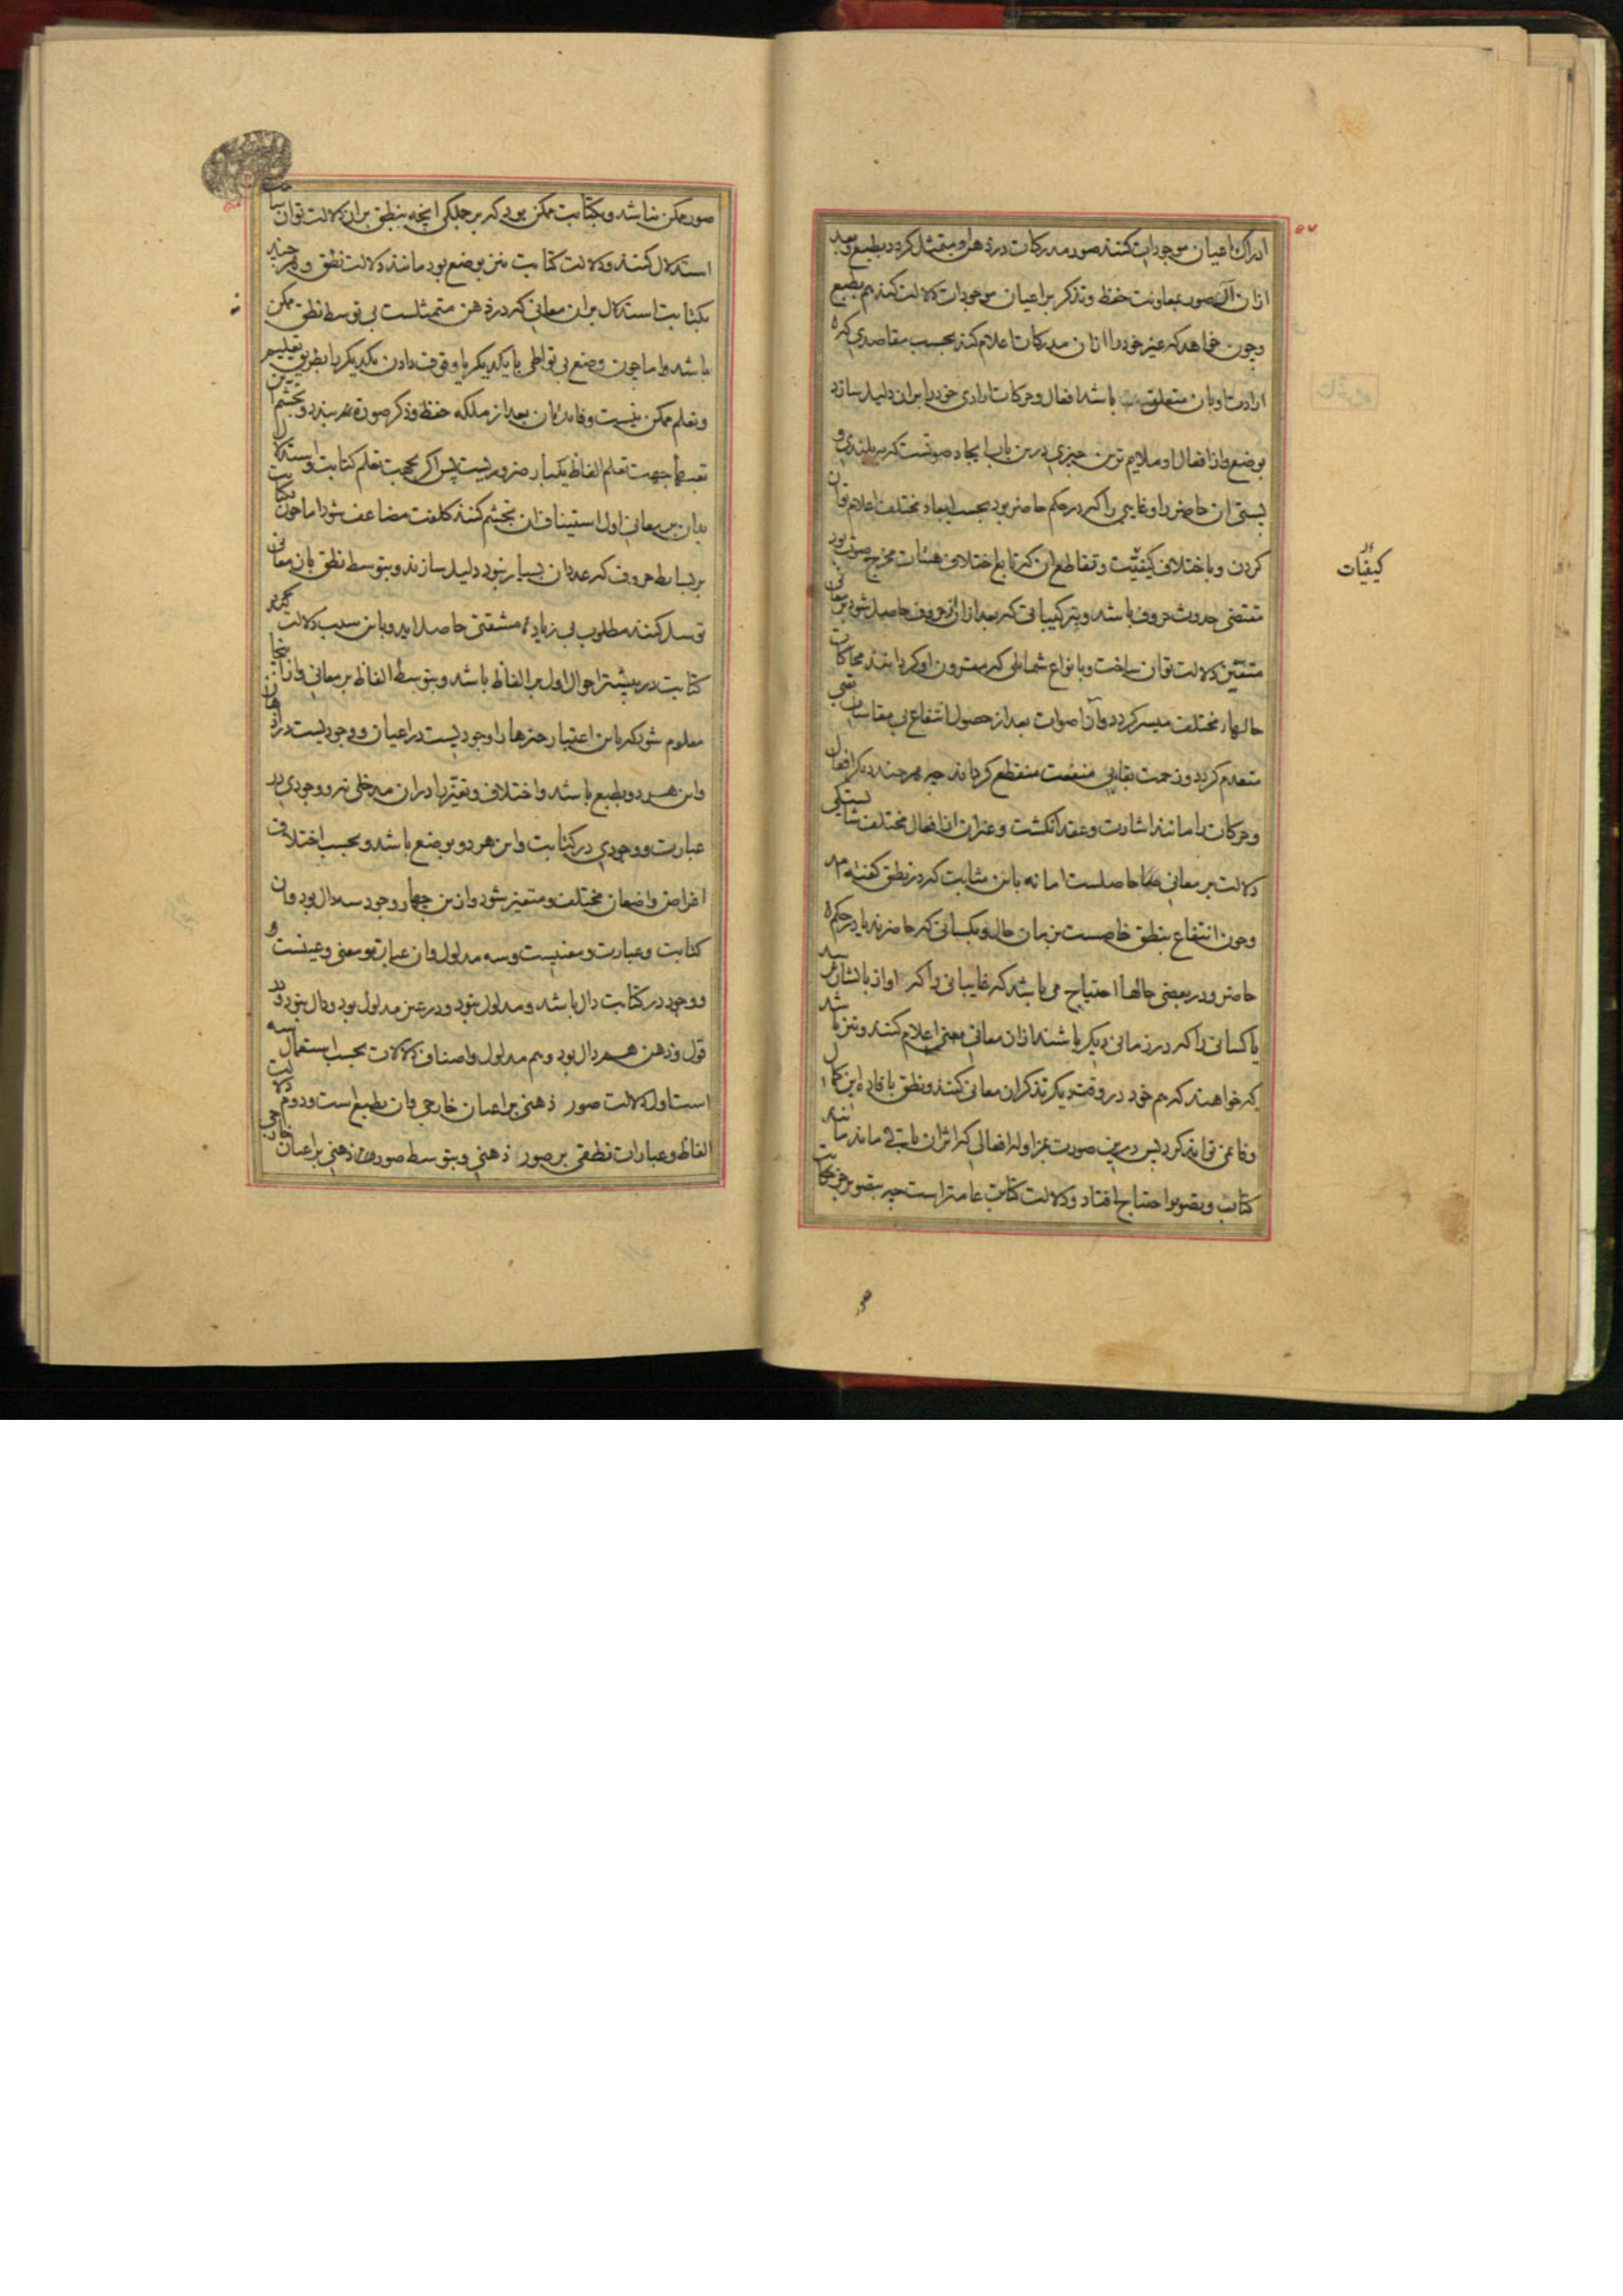 ادراک اعیان موجودات کنند صور مدرکات در ذهن او متمثل گردد بطبع و بعد
ازان آن صور بمعاونت حفظ و تذکر بر اعیان موجودات دلالت کند هم بطبع
و چون خواهد که غیر خود را ازان مدرکات اعلام کند بحسب مقاصدی که
ارادت او بان متعلق باشد افعال و حرکات ارادی خود را بران دلیل سازد
بوضع و از افعال او ملایم ترین چیزی درین باب ایجاد صوتست که به بلندی و
پستی آن حاضر را و غایبی را که در حکم حاضر بود بحسب ابعاد مختلف اعلام توان
کردن و باختلاف کیفیت و تقاطع آن که تابع اختلاف هیئات مخرج صوت بود
کیفیات
مقتضی حدوث حروف باشد و بترکیباتی که بعد ازان از حروف حاصل شود بر معانی
متفنن دلالت توان ساخت و بانواع شمایلی که مقرون او گردانند محاکات
حالهاء مختلف میسر گردد و آن اصوات بعد از حصول انتفاع بی مقاسات تعبی
منعدم گردد و زحمت بقای بی منفعت منقطع گرداند چه هر چند دیگر افعال
و حرکات را مانند اشارت و عقد انگشت و غیر آن از افعال مختلف شایستگی
دلالت بر معانی حاصلست اما نه باین مثابت که در نطق گفته آمد
و چون انتفاع بنطق خاصست بزمان حال و بکسانی که حاضرند یا در حکم
حاضر و در بعضی حالها احتیاج می باشد که غایبانی را که آواز بایشان نرسد
یا کسانی را که در زمانی دیگر باشند ازان معانی معنی اعلام کنند و نیز باشد
که خواهند که هم خود در وقت دیگر تذکر آن معانی کنند و نطق بافاده این کمال
وفا نمی تواند کرد پس درین صورت بمزاوله افعالی که اثر آن باقی ماند مانند
کتابت و تصویر احتیاج افتاد و دلالت کتابت عامتر است چه بتصویر جز محاکات
صور
صور ممکن نباشد و بکتابت ممکن بود که بر جملگی آنچه بنطق بران دلالت توان ساخت
استدلال کنند و دلالت کتابت نیز بوضع بود مانند دلالت نطق و هر چند
بکتابت استدلال بران معانی که در ذهن متمثلست بی توسط نطق ممکن
باشد و اما چون وضع بی تواطی با یکدیگر یا وقوف دادن یکدیگر را بطریق تعلیم
و تعلم ممکن نیست
تعبیر جهت تعلم الفاظ یکبار ضروریست پس اگر بجهت تعلم کتابت و استدلال
بدان بر معانی اول استیناف آن تجشم کنند کلفت مضاعف شود اما چون بکتابت
بر بسایط حروف که عدد آن بسیار نبود دلیل سازند و بتوسط نطق بان معانی
توسل کنند مطلوب بی زیاده مشقتی حاصل آید و باین سبب دلالت
کتابت در بیشتر احوال اول بر الفاظ باشد و بتوسط الفاظ بر معانی و ازینجا
معلوم شود که باین اعتبار چیزها را وجودیست در اعیان و وجودیست در اذهان
و این هر دو بطبع باشد و اختلاف و تغیر را دران مدخلی نه و وجودی در
عبارت و وجودی در کتابت و این هر دو بوضع باشد و بحسب اختلاف
اغراض واضعان مختلف و متغیر شود و ازین چهار وجود سه دال بود و آن
کتابت و عبارت و معنیست و سه مدلول و آن عبارت و معنی و عینست و
وجود در کتابت دال باشد و مدلول نبود و در عین مدلول بود و دال نبود و در
قول و ذهن هم دال بود و هم مدلول و اصناف دلالات بحسب استعمال سه
است اول دلالت صور ذهنی بر اعیان خارجی و آن بطبع است و دوم دلالت
الفاظ و عبارات نطقی بر صور ذهنی و بتوسط صور ذهنی بر اعیان خارجی